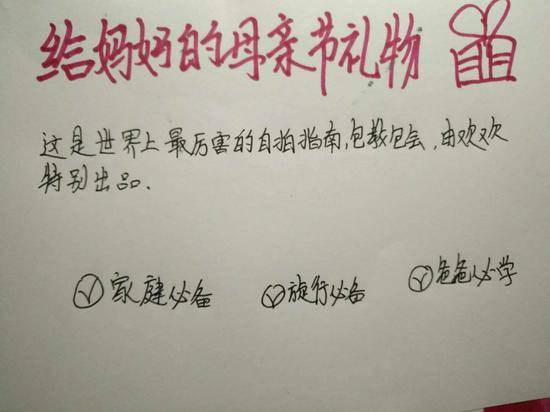 给妈妈的母亲节礼物
这是世界上最厉害的自拍指南,包教包会,由欢欢
特别出品.
家庭必备 旅行必备 爸爸必学